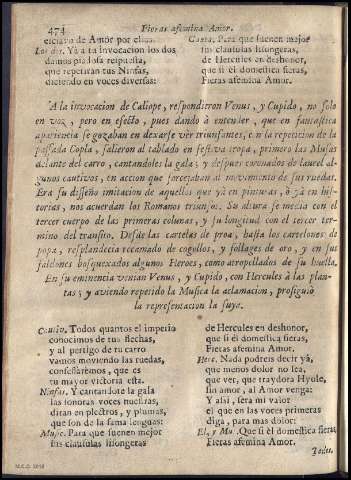 474 Fieras afemina Amor.
esclavo de Amor por ellos.
Los dos. Yà a la invocacion los dos
damos piadosa respuesta,
que repetiràn tus Ninfas,
diziendo en voces diversas:
Cant. Para que suenen mejor
sus clausulas lisongeras,
de Hercules en deshonor,
que si èl domestica fieras,
Fieras afemina Amor.
A la invocacion de Caliope, respondieron Venus, y Cupido, no solo
en voz, pero en efecto, pues dando à entender, que en fantastica
apariencia se gozaban en dexarse vèr triunfantes, con la repeticion de la
passada Copla, salieron al tablado en festiva tropa, primero las Musas
delante del carro, cantandoles la gala; y despues coronados de laurel al-
gunos cautivos, en accion que forcejaban al movimiento de sus ruedas.
Era su diseño imitacion de aquellos que yà en pinturas, ò yà en his-
torias, nos acuerdan los Romanos triunfos. Su altura se media con el
tercer cuerpo de las primeras colunas, y su longitud con el tercer ter-
mino del transito. Desde las cartelas de proa, hasta los cartelones de
popa, resplandecia recamado de cogollos, y follages de oro, y en sus
faldones bosquexados algunos Heroes, como atropellados de su huella.
En su eminencia venian Venus, y Cupido, con Hercules à las plan-
tas; y aviendo repetido la Musica la aclamacion, prosiguiò
la representacion la suya.
Cautiv. Todos quantos el imperio
conocimos de tus flechas,
y al pertigo de tu carro
vamos moviendo las ruedas,
confessarèmos, que es
tu mayor victoria esta.
Ninfas. Y cantandote la gala
las sonoras voces nuestras,
diràn en plectros, y plumas,
que son de la fama lenguas:
Music. Para que suenen mejor
sus clausulas lisongeras
de Hercules en deshonor,
que si èl domestica fieras,
Fieras afemina Amor.
Herc. Nada podreis decir yà,
que menos dolor no sea,
que vèr, que traydora Hyole,
sin amor, al Amor venga:
Y assi, serà mi valor
el que en las voces primeras
diga, para mas dolor:
El, y Mu. Que si èl domestica fieras
Fieras afemina Amor.
Todos.